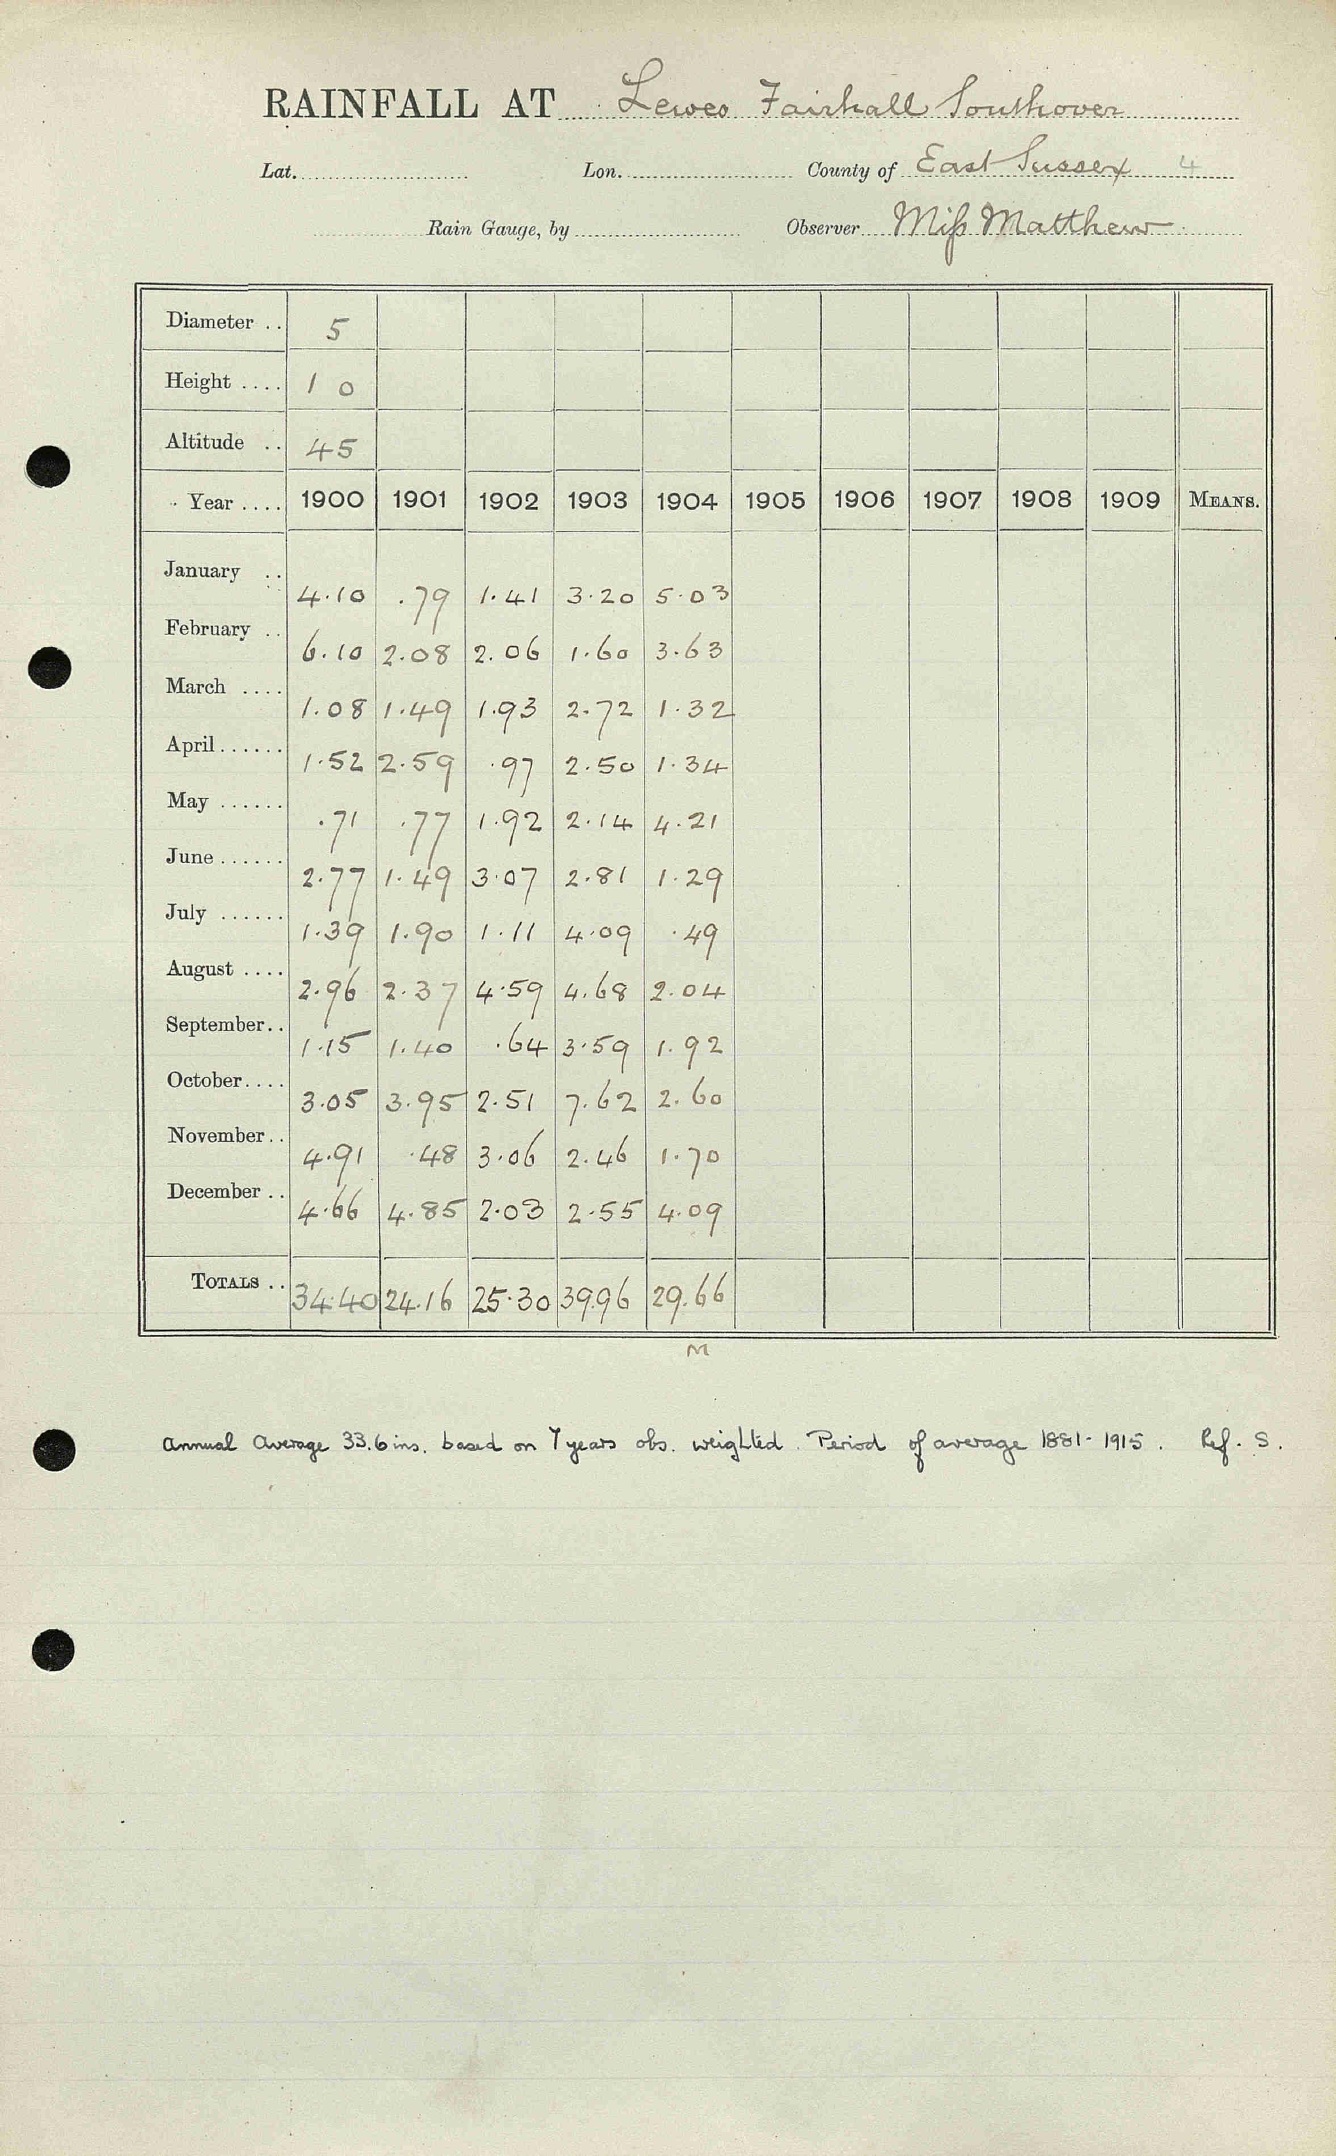 RAINFALL AT Lewes Fairhall Southover
Lat. Lon. County of East Sussex 4
Rain Gauge, by Observer Miss Matthew
Diameter .. 5
Height .... 1 0
Altitude .. 45
Year .... 1900 1901 1902 1903 1904 1905 1906 1907 1908 1909 MEANS.
January .. 4.10 .79 1.41 3.20 5.03
February .. 6.10 2.08 2.06 1.60 3.63
March .... 1.08 1.49 1.93 2.72 1.32
April ...... 1.52 2.59 .97 2.50 1.34
May ...... .71 .77 1.92 2.14 4.21
June ...... 2.77 1.49 3.07 2.81 1.29
July ...... 1.39 1.90 1.11 4.09 .49
August .... 2.96 2.37 4.59 4.68 2.04
September.. 1.15 1.40 .64 3.59 1.92
October.... 3.05 3.95 2.51 7.62 2.60
November.. 4.91 .48 3.06 2.46 1.70
December .. 4.66 4.85 2.03 2.55 4.09
TOTALS .. 34.40 24.16 25.30 39.96 29.66
M
Annual Average 33.6 ins. based on 7 years obs. weighted. Period of average 1881-1915. Ref. S.